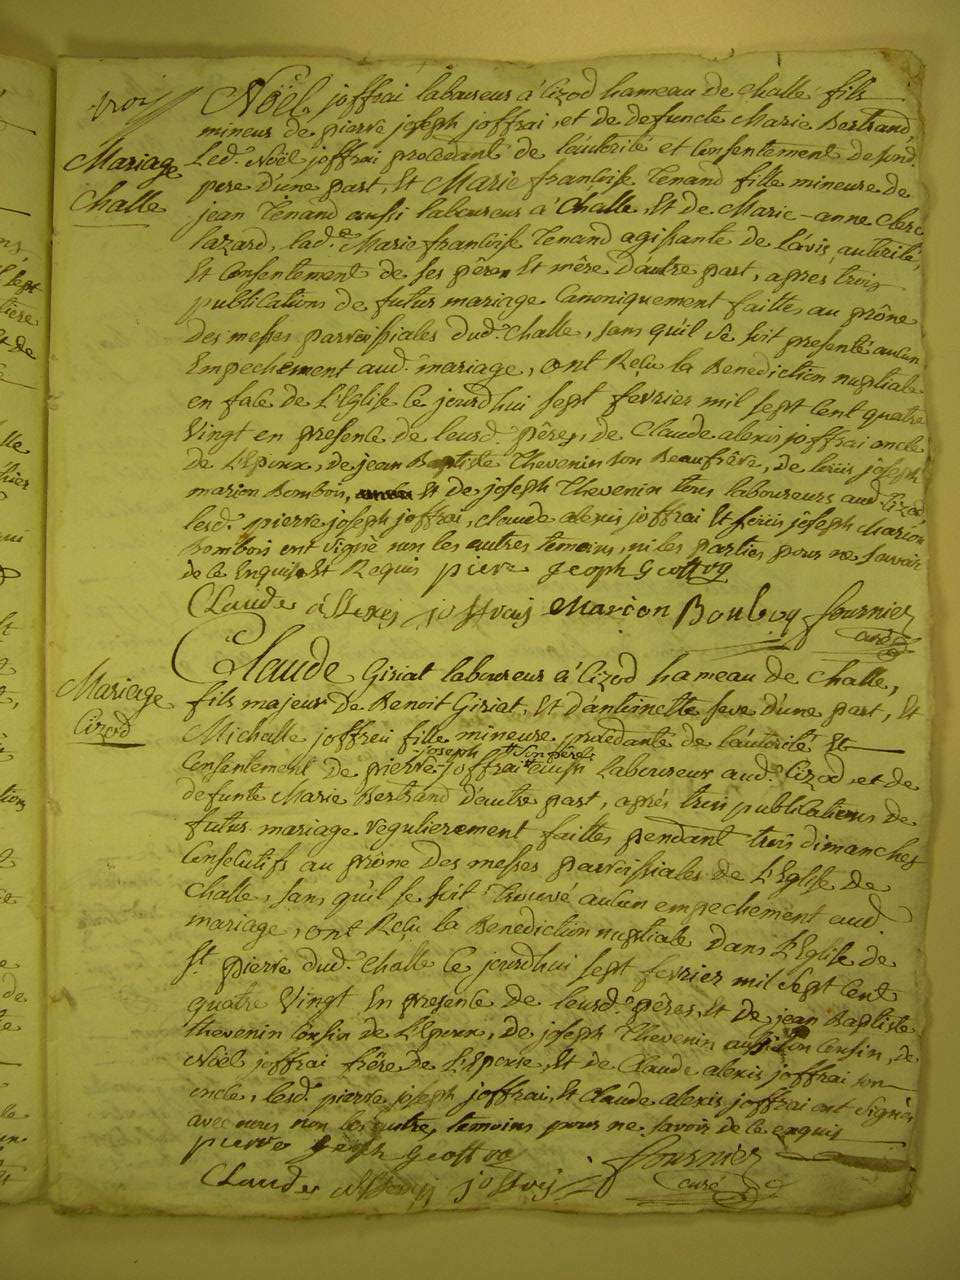 Mariage
Challe
Noël joffrai laboureur à Cizod hameau de Challe fils
mineur de pierre joseph joffrai, et de defuncte Marie Bertrand,
Led. Noël joffrai procedant de l'autorité et Consentement de sond.
pere d'une part, Et Marie francoise Tenand fille mineure de
jean Tenand aussi laboureur à Challe Et de Marie-anne Clerc
lazard, lad.e Marie francoise Tenand agissante de l'avis, autorité,
Et Consentement de ses pêre Et mère d'autre part, apres trois
publications de futur mariage Canoniquement faittes au prône
des messes parroissiales dud. Challe, sans qu'il se soit presenté aucun
Empechement aud. mariage, ont Reçu la Benediction nuptiale
en face de L'Eglise ce jourdhui sept fevrier mil sept Cent quatre
Vingt en presence de leursd. pêres, de Claude alexis joffrai oncle
de L'Epoux, de jean Baptiste Thevenin son Beaufrêre, de louis joseph
marion Bombois, Et de joseph Thevenin tous laboureurs aud. Cizod
lesd. pierre joseph joffrai, Claude alexis joffrai Et louis joseph Marion
Bombois ont signé non les autres temoins, ni les parties pour ne sçavoir
de ce Enquis Et Requis piere Geoph Geoffroy
Claude àllexis joffrais Marion Bouboy fournier
curé
Mariage
Cizod
Claude Girist laboureur à Cizod hameau de Challe,
fils majeur de Benoit Girist, Et d'antoinette feve d'une part, Et
Michalle joffrai fille mineure procedante de l'autorité Et
joseph
Consentement de pierre joffrai laboureur aud. Cizod, et de
defunte Marie Bertrand d'autre part, aprés trois publications de
futur mariage regulierement faittes pendant trois dimanches
Consecutifs au prône des messes parroissiales de L'Eglise de
Challe, sans qu'il se soit trouvé aucun empechement aud.
mariage, ont Reçu la Benediction nuptiale dans L'Eglise de
St. pierre dud. Challe ce jourdhui sept fevrier mil sept Cent
quatre Vingt En presence de leursd. pêres, Et de jean Baptiste
thevenin Cousin de L'Epoux, de joseph Thevenin aussi son Cousin, de
Noël joffrai frêre de L'Epouse, Et de Claude alexis joffrai son
oncle, lesd. pierre joseph joffrai, Et Claude alexis joffrai ont signés
avec nous non les autres temoins pour ne savoir de ce enquis
pierre Geoffroy fournier
Claude joffroy curé